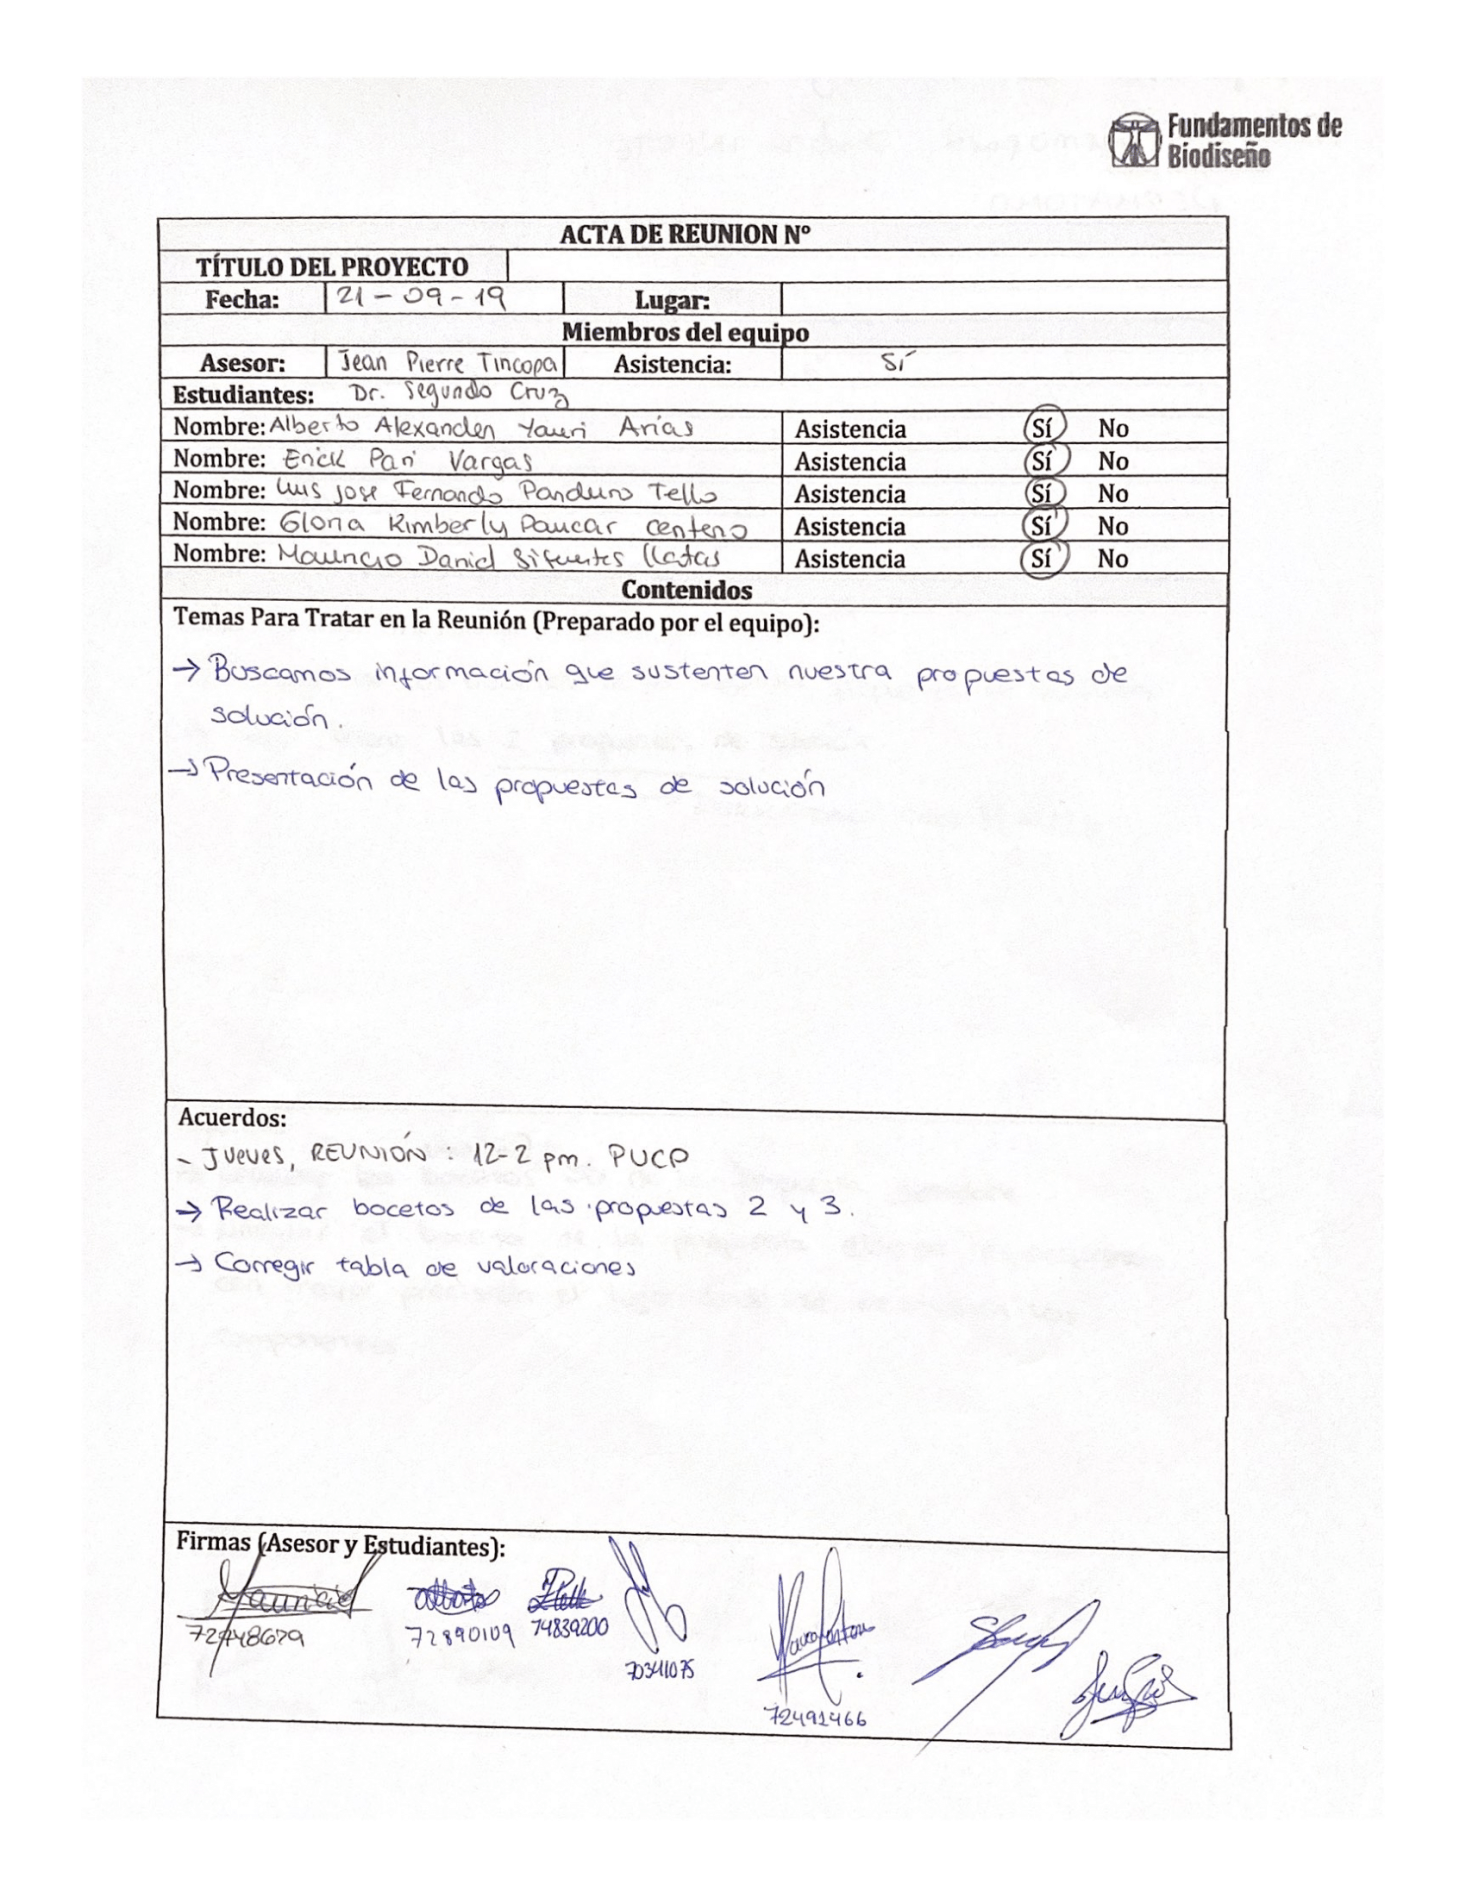 Fundamentos de
Biodiseño
ACTA DE REUNION Nº
TÍTULO DEL PROYECTO
Fecha: 21-09-19 Lugar:
Miembros del equipo
Asesor: Jean Pierre Tincopa Asistencia: Sí
Estudiantes: Dr. Segundo Cruz
Nombre: Alberto Alexander Yauri Arias Asistencia Sí No
Nombre: Erick Pari Vargas Asistencia Sí No
Nombre: Luis Jose Fernando Panduro Tello Asistencia Sí No
Nombre: Gloria Kimberly Paucar Centeno Asistencia Sí No
Nombre: Mauricio Daniel Sifuentes Llatas Asistencia Sí No
Contenidos
Temas Para Tratar en la Reunión (Preparado por el equipo):
→ Buscamos información que sustenten nuestra propuestas de
solución.
→ Presentación de las propuestas de solución
Acuerdos:
- Jueves, REUNIÓN: 12-2 pm. PUCP
→ Realizar bocetos de las propuestas 2 y 3.
→ Corregir tabla de valoraciones
Firmas (Asesor y Estudiantes):
72890109 74839200
70341075
72491466